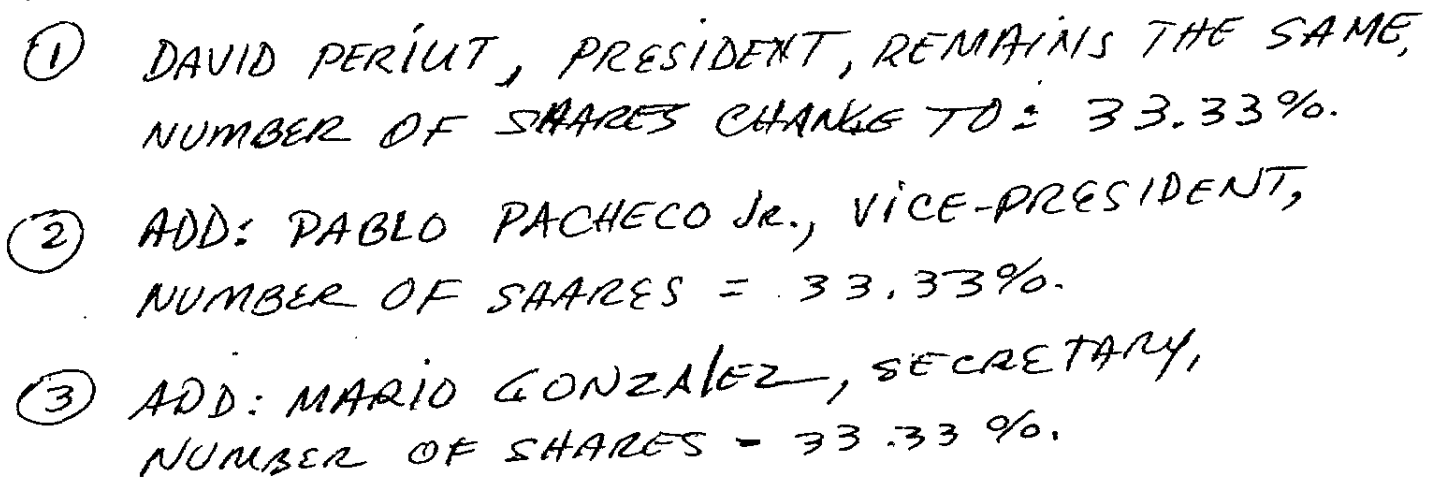 ① DAVID PERIUT, PRESIDENT, REMAINS THE SAME,
NUMBER OF SHARES CHANGE TO: 33.33%.
② ADD: PABLO PACHECO JR., VICE-PRESIDENT,
NUMBER OF SHARES = 33.33%.
③ ADD: MARIO GONZALEZ, SECRETARY,
NUMBER OF SHARES - 33.33%.